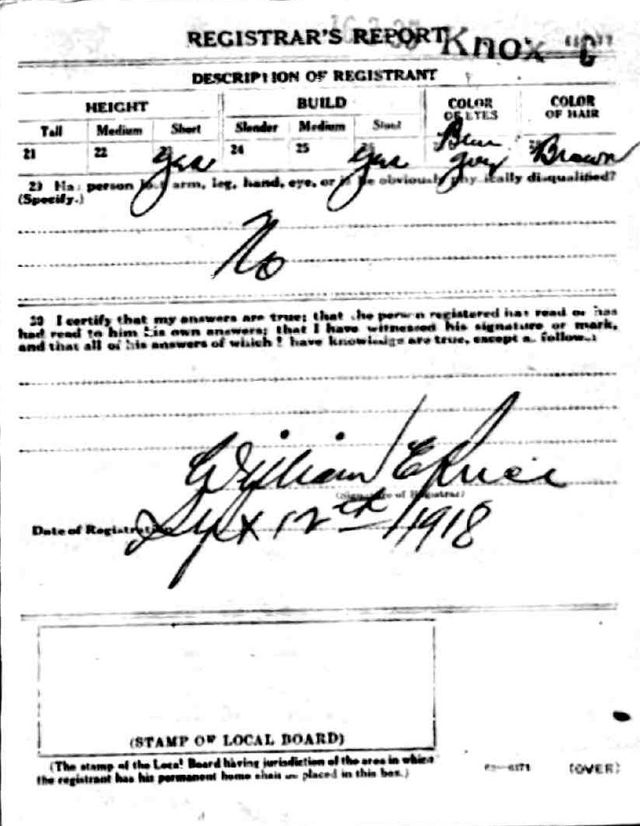 REGISTRAR'S REPORT Knox
DESCRIPTION OF REGISTRANT
HEIGHT BUILD COLOR OF EYES COLOR OF HAIR
Tall Medium Short Slender Medium Stout
21 22 yes 24 25 yes Brown
29 Has person lost arm, leg, hand, eye, or is he obviously physically disqualified?
(Specify.)
No
30 I certify that my answers are true; that the person registered has read or has
had read to him his own answers; that I have witnessed his signature or mark,
and that all of his answers of which I have knowledge are true, except as follows:
William E
(Signature of Registrar)
Date of Registration Sept 12th 1918
(STAMP OF LOCAL BOARD)
(The stamp of the Local Board having jurisdiction of the area in which
the registrant has his permanent home shall be placed in this box.)
(OVER)